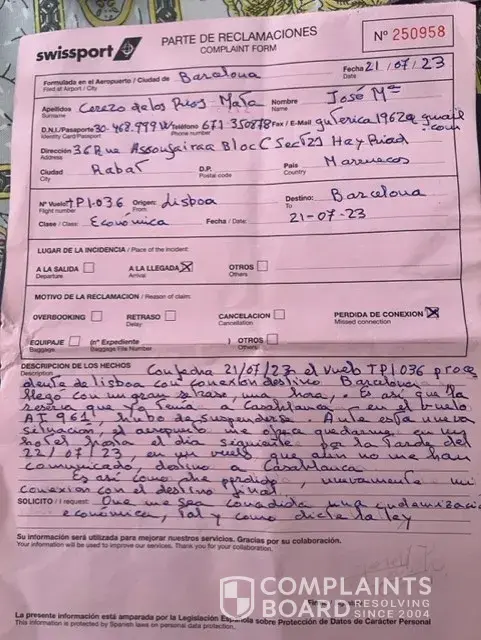 swissport
PARTE DE RECLAMACIONES
COMPLAINT FORM
Nº 250958
Formulado en el Aeropuerto / Ciudad de Barcelona
Filed at Airport / City
Fecha 21/07/23
Date
Apellidos Cerezo de los Rios - Mata
Surname
Nombre José Mª
Name
D.N.I./Pasaporte 30-468.999W
Identity Card/Passport
Teléfono 671-350878
Phone number
Fax / E-Mail guterica1962@gmail.com
Dirección 36 Rue Assonaira Bloc C Sect 21 Hay Riad
Address
Ciudad Rabat
City
D.P.
Postal code
País Marruecos
Country
Nº Vuelo TP1036
Flight number
Origen: Lisboa
From:
Destino: Barcelona
To
Clase / Class: Económica
Fecha / Date: 21-07-23
LUGAR DE LA INCIDENCIA / Place of the incident:
A LA SALIDA
Departure
A LA LLEGADA X
Arrival
OTROS
Others
MOTIVO DE LA RECLAMACION / Reason of claim:
OVERBOOKING
RETRASO
Delay
CANCELACION
Cancellation
PERDIDA DE CONEXION X
Missed connection
EQUIPAJE
Baggage
(nº Expediente
(Baggage File Number
) OTROS
Others
DESCRIPCION DE LOS HECHOS Con fecha 21/07/23 el vuelo TP1036 proce
Description
dente de lisboa con conexion destino Barcelona
llego con un gran retraso, una hora. Es así que la
reserva que yo tenia a Casablanca en el vuelo
AT 961, hubo de suspenderse. Ante esta nueva
situacion, el aeropuerto me obliga quedarme en un
hotel hasta el día siguiente por la tarde del
22/07/23, en un vuelo que aún no me han
comunicado, destino a Casablanca.
Es así como he perdido, nuevamente mi
conexion con el destino final.
SOLICITO / I request: Que me sea concedida una indemnización
económica, tal y como dicte la ley
Su información será utilizada para mejorar nuestros servicios. Gracias por su colaboración.
Your information will be used to improve our services. Thank you for your collaboration.
COMPLAINTS
BOARD RESOLVING
SINCE 2004
La presente información esta amparada por la Legislación Española sobre Protección de Datos de Carácter Personal
This information is protected by Spanish laws on personal data protection.